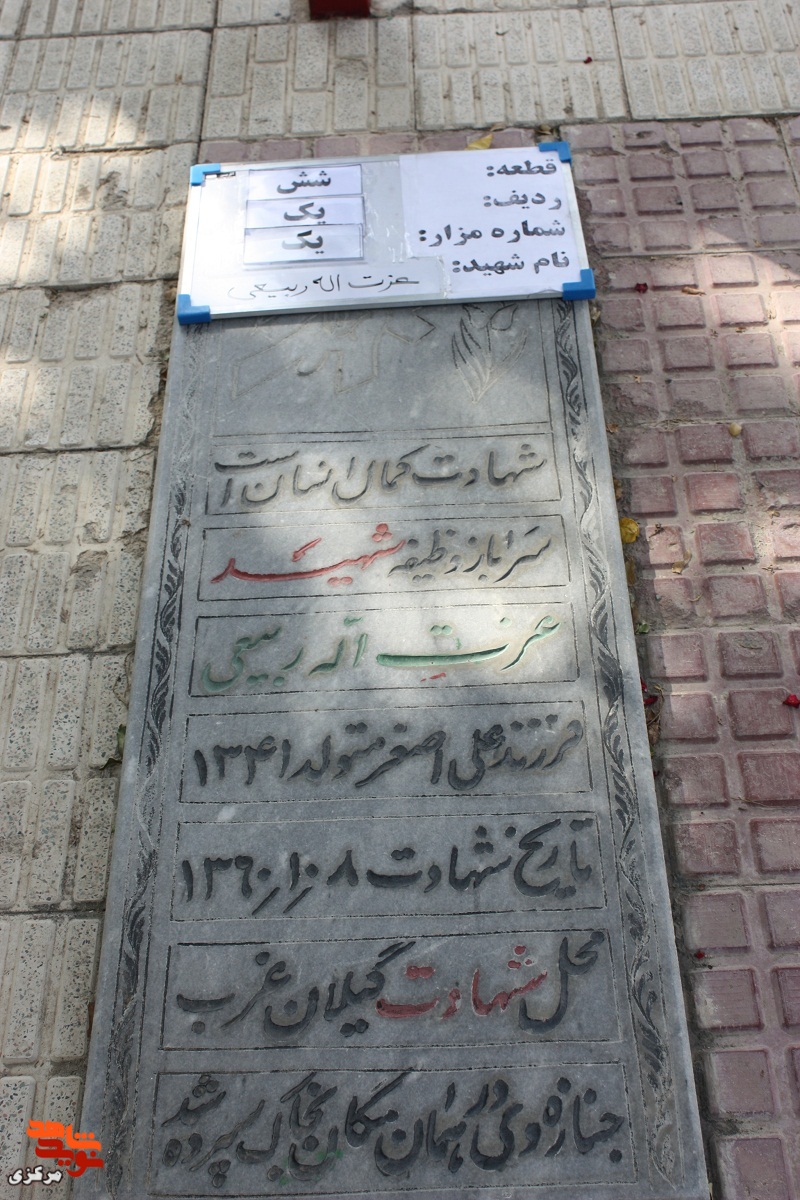 قطعه: شش
ردیف: یک
شماره مزار: یک
نام شهید: عزت اله ربیعی
شهادت کمال انسان است
سرباز وظیفه شهید
عزت اله ربیعی
فرزند علی اصغر متولد ۱۳۴۱
تاریخ شهادت ۱۳۶۰/۱۰/۰۸
محل شهادت گیلان غرب
جنازه وی در همان مکان بخاک سپرده شد
نوید شاهد
مرکزی